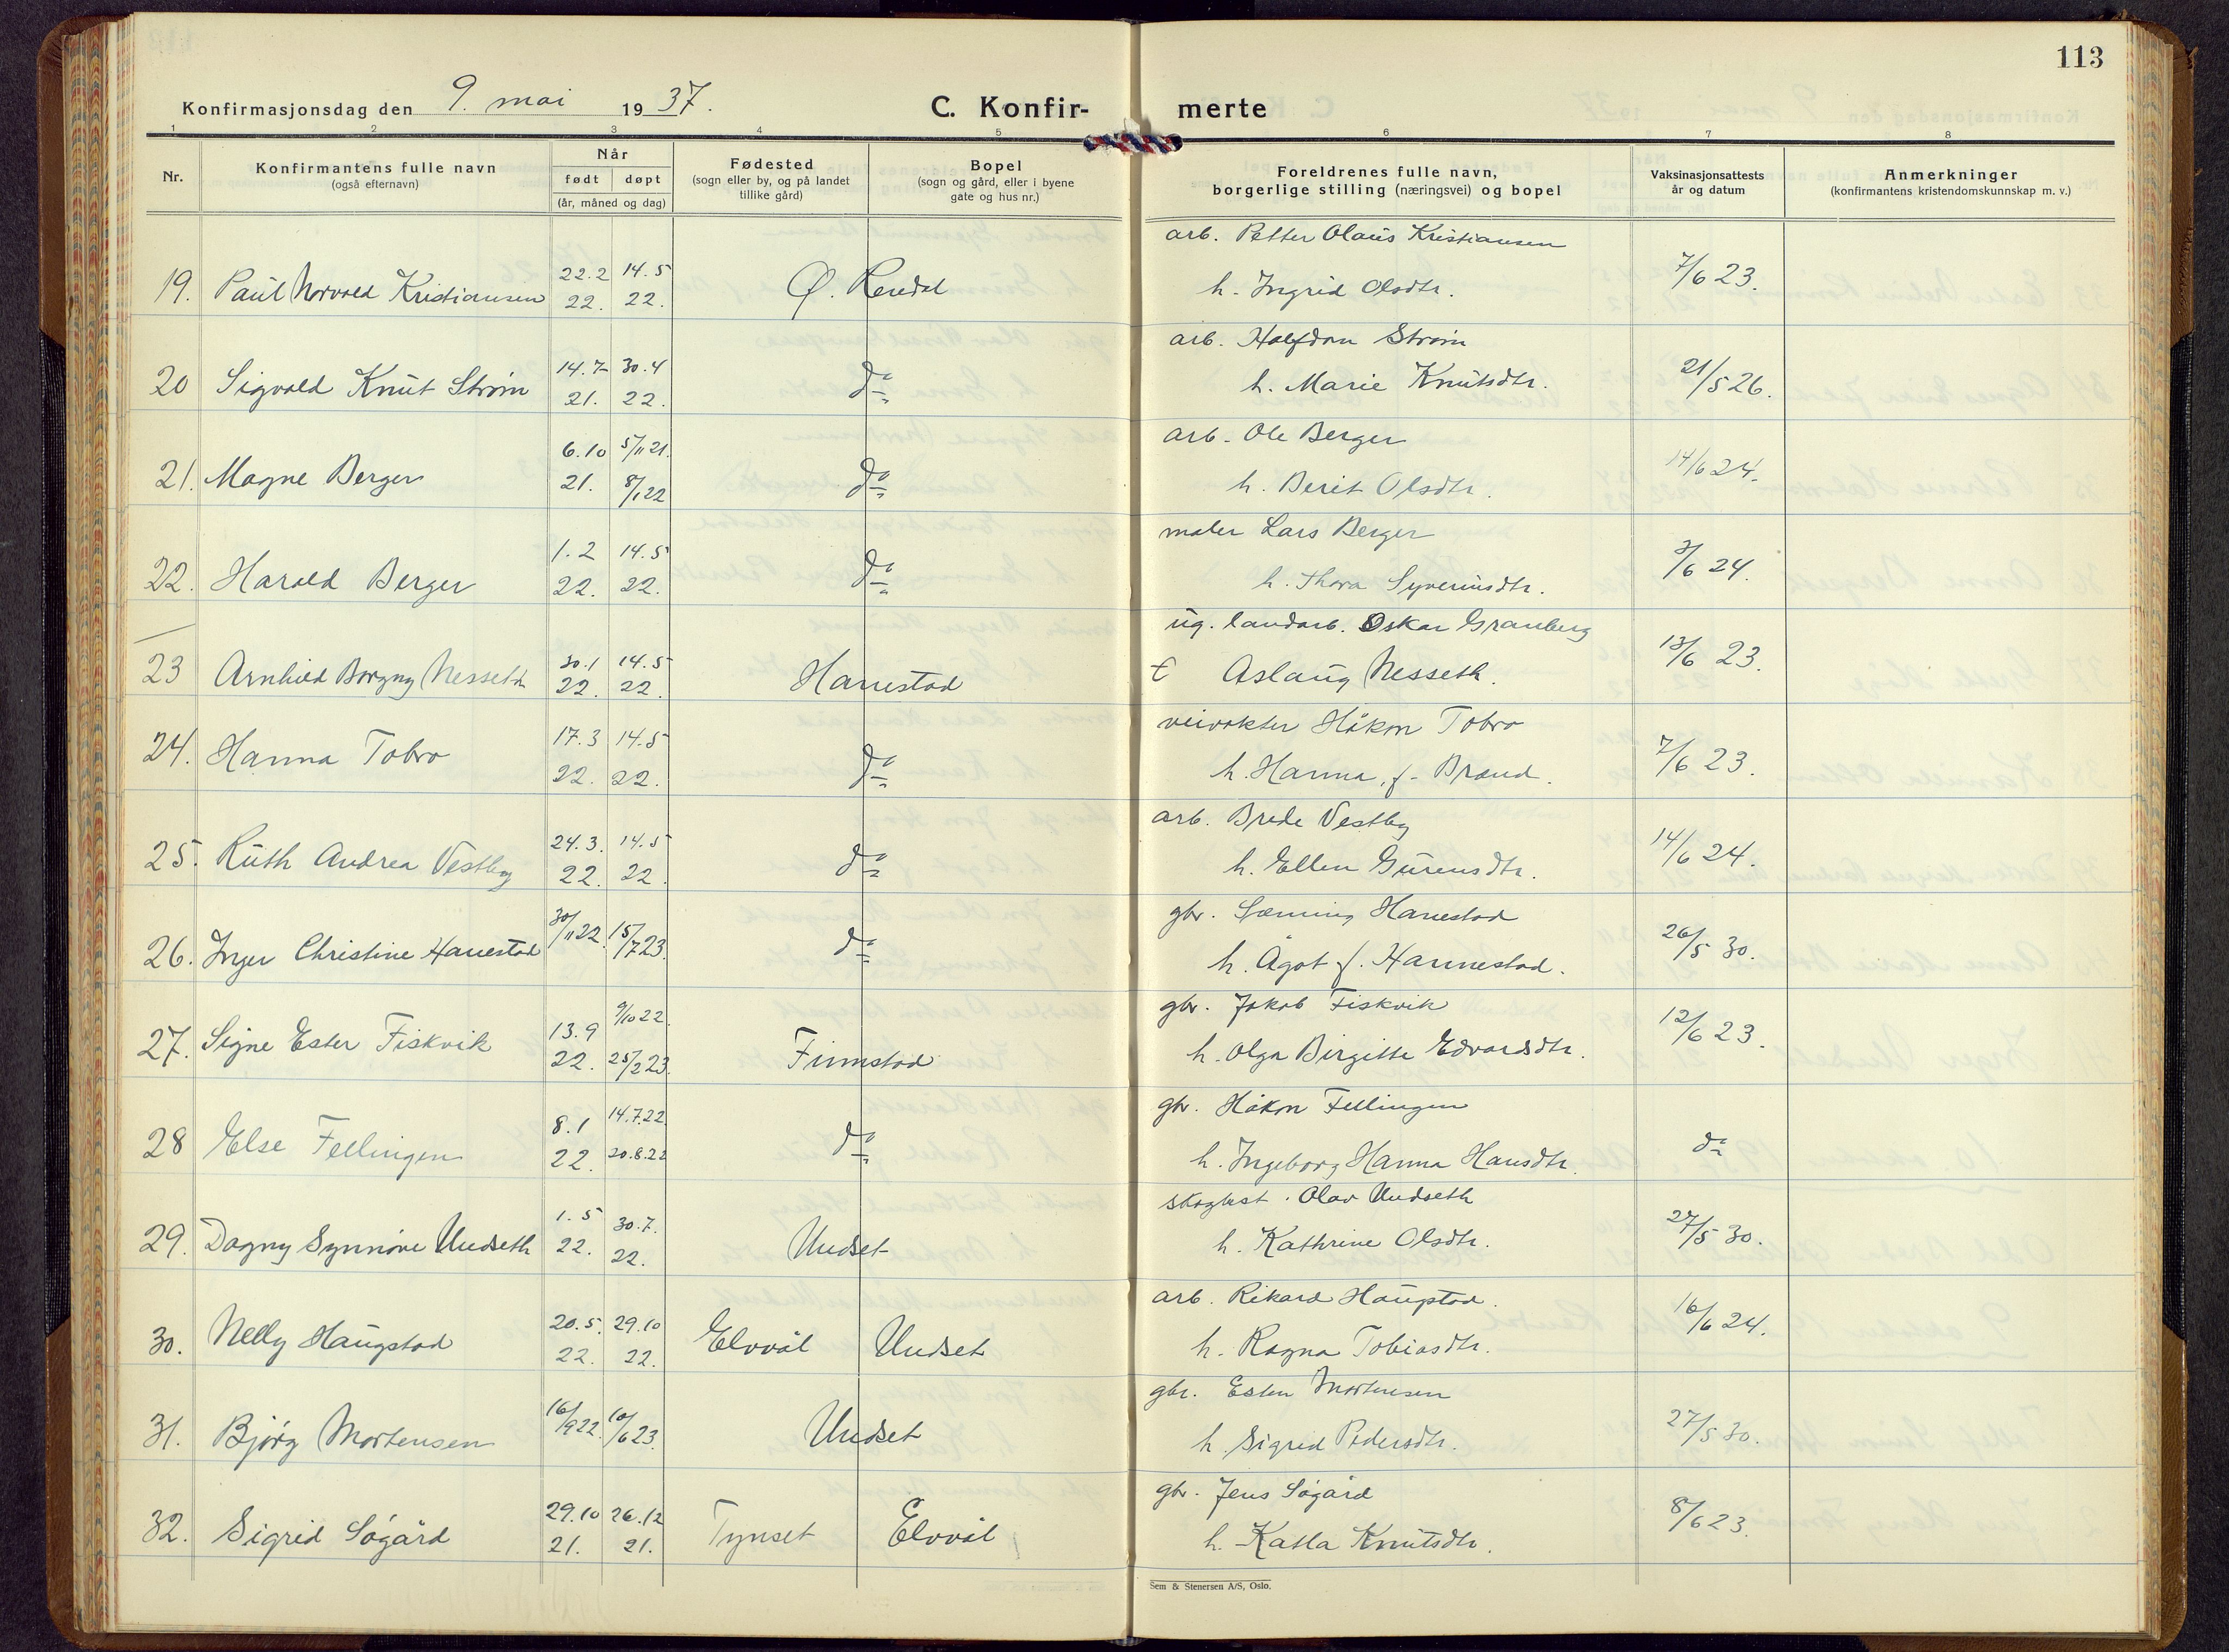 113
Konfirmasjonsdag den 9. mai 1937.
C. Konfir- merte
1 2 3 4 5 6 7 8
Nr.
Konfirmantens fulle navn
(også efternavn)
Når
født døpt
(år, måned og dag)
Fødested
(sogn eller by, og på landet
tillike gård)
Bopel
(sogn og gård, eller i byene
gate og hus nr.)
Foreldrenes fulle navn,
borgerlige stilling (næringsvei) og bopel
Vaksinasjonsattests
år og datum
Anmerkninger
(konfirmantens kristendomskunnskap m. v.)
arb. Petter Olaus Kristiansen
22.2 14.5 7/6 23.
19. Paul Norvald Kristiansen Ø. Rendal h. Ingrid Olsdtr.
22. 22.
arb. Halfdan Strøm
14.7 30.4
20 Sigvald Knut Strøm do h. Marie Knutsdtr. 21/5 26.
21. 22.
arb. Ole Berger
6.10 5/11 21. 14/6 24.
21. Magne Berger do h. Berit Olsdtr.
21. 8/1 22
maler Lars Berger
1.2 14.5 3/6 24.
22. Harald Berger do h. Thora Syverinsdtr.
22. 22.
ug. landarb. Oskar Granberg
30.1 14.5 13/6 23.
23 Arnhild Borgny Nesseth Hanestad t Aslaug Nesseth.
22. 22.
veivokter Håkon Tobro
17.3 14.5
24. Hanna Tobro do h. Hanna, f. Brænd. 7/6 23.
22. 22.
arb. Brede Vestby
24.3. 14.5
25. Ruth Andrea Vestby do h. Ellen Gurensdtr. 14/6 24.
22. 22.
gbr. Sæming Hanestad
26. Inger Christine Hanestad 30/11 22. 15/7 23. do h. Ågot f. Hannestad. 26/5 30.
gbr. Jakob Fiskvik
13.9 9/10 22.
27. Signe Ester Fiskvik Finnstad h. Olga Birgitte Edvardsdtr. 12/6 23.
22. 25/2 23.
gbr. Håkon Fellingen
8.1 14.7.22.
28 Else Fellingen do h. Ingeborg Hanna Hansdtr. do
22. 20.8.22
skogbest. Olav Undseth
1.5 30.7.
29. Dagny Synnøve Undseth Undset h. Kathrine Olsdtr. 27/5 30.
22. 22.
arb. Rikard Haugstad.
20.5. 29.10
30. Nelly Haugstad Elvvål Undset h. Ragna Tobiasdtr. 16/6 24.
22. 22.
gbr. Esten Mortensen
31. Bjørg Mortensen 16/9 22. 10/6 23. Undset h. Sigrid Pedersdtr. 27/5 30.
gbr. Jens Søgård
29.10 26.12
32. Sigrid Søgård Tynset Elvvål h. Katla Knutsdtr. 8/6 23.
21. 21.
Sem & Stenersen A/S, Oslo.